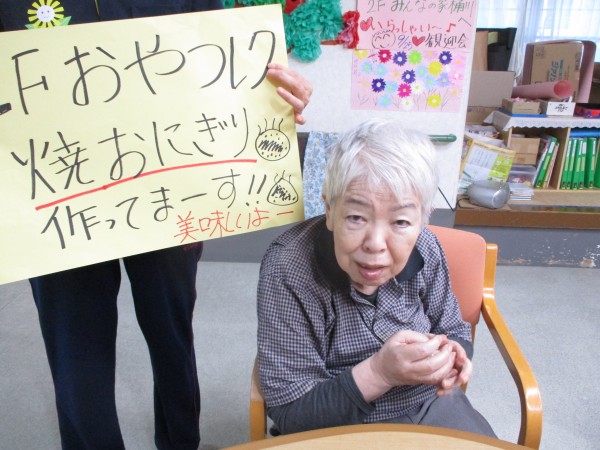 2Fおやつレク
焼おにぎり
作ってまーす!!
美味しいよー
2F みんなの家 桶川
いらっしゃい〜♪
観桜会